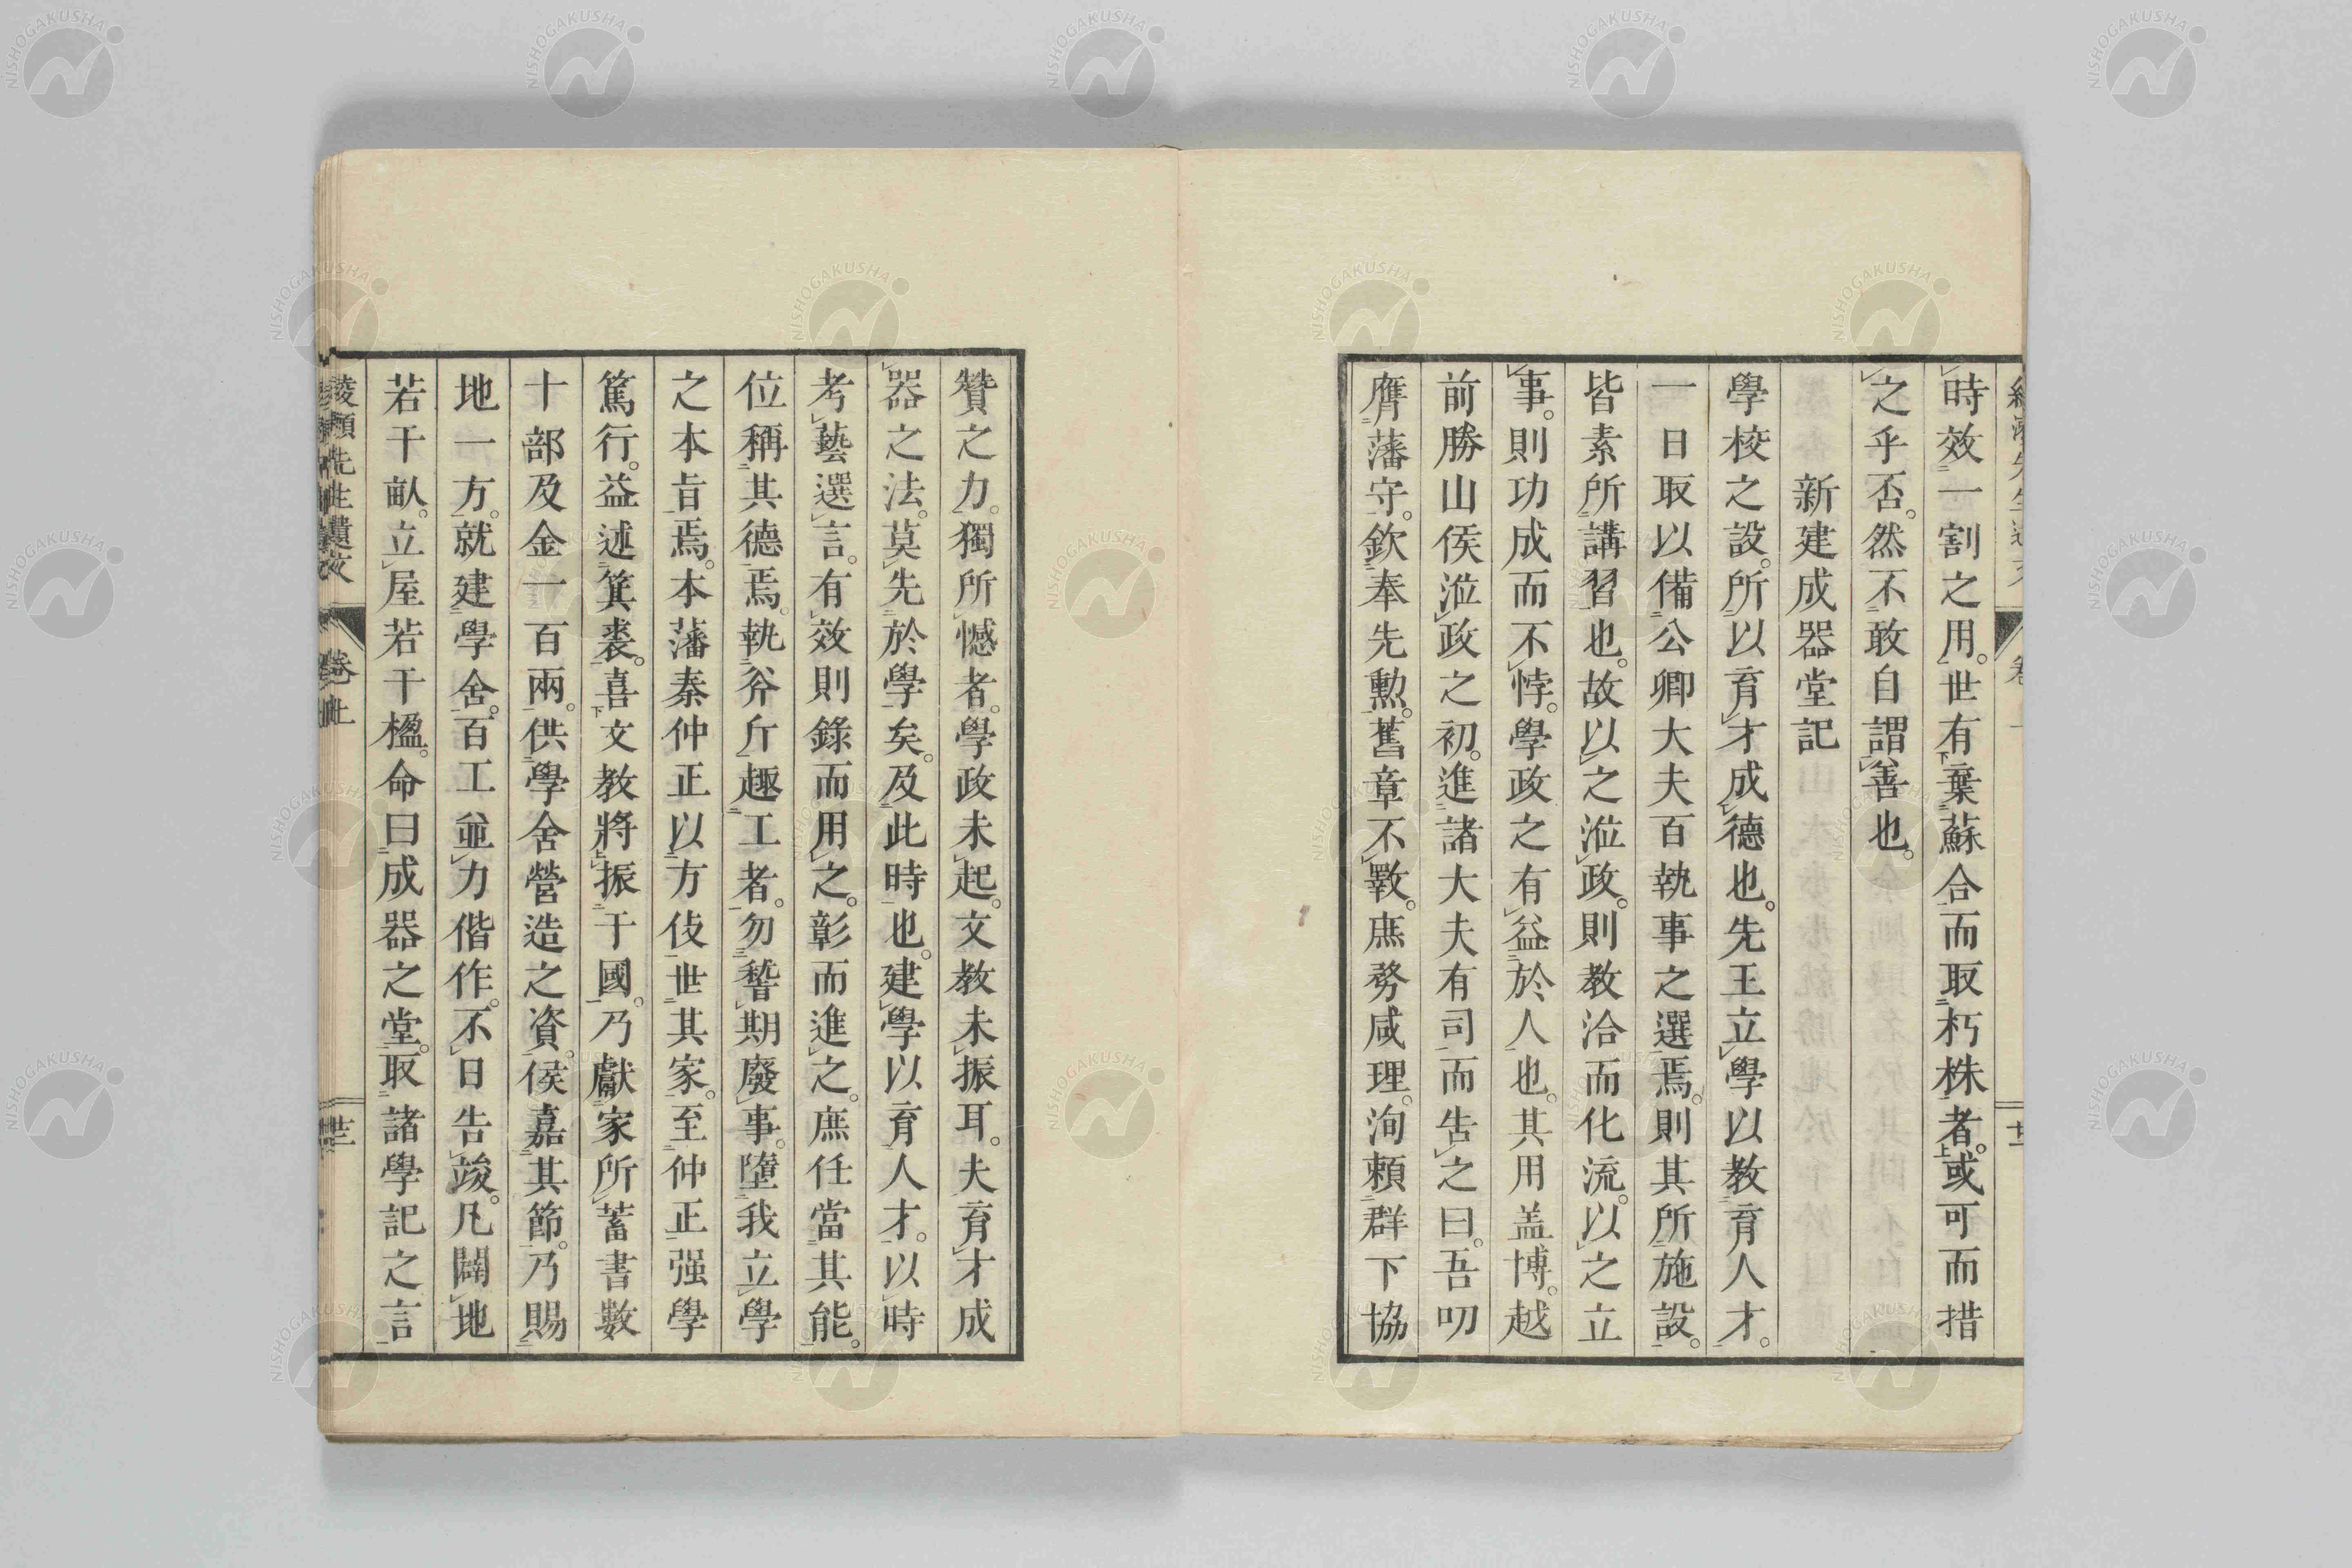 時效一割之用。世有棄蘇合而取朽株者。或可而措
之乎否。然不敢自謂善也。
新建成器堂記
學校之設。所以育才成德也。先王立學以教育人才。
一日取以備公卿大夫百執事之選焉。則其所施設。
皆素所講習也。故以之涖政。則教洽而化流。以之立
事。則功成而不悖。學政之有益於人也。其用盖博。越
前勝山侯涖政之初。進諸大夫有司而告之曰。吾叨
膺藩守。欽奉先勲。舊章不斁。庶務咸理。洵賴群下協
贊之力。獨所憾者。學政未起。文教未振耳。夫育才成
器之法。莫先於學矣。及此時也。建學以育人才。以時
考藝選言。有效則錄而用之。彰而進之。庶任當其能。
位稱其德焉。執斧斤趣工者。勿瞀期廢事。墮我立學
之本旨焉。本藩秦仲正以方伎世其家。至仲正强學
篤行。益述箕裘。喜文教將振于國。乃獻家所蓄書數
十部及金一百兩。供學舍營造之資。侯嘉其節。乃賜
地一方。就建學舍。百工並力偕作。不日告竣。凡闢地
若干畝。立屋若干楹。命曰成器之堂。取諸學記之言
綾瀬先生遺文 卷上 廿三
NISHOGAKUSHA